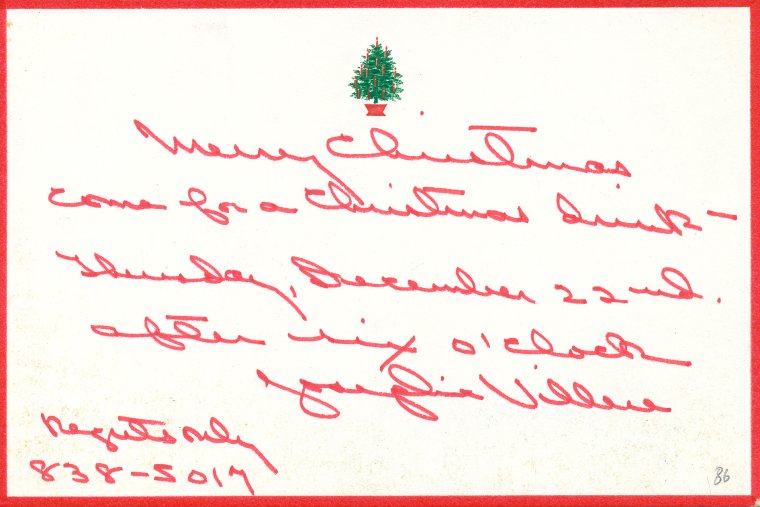 Merry Christmas
come for a Christmas drink –
Thursday, December 22nd.
after six o'clock
Villere
Regrets only
838-5017
86